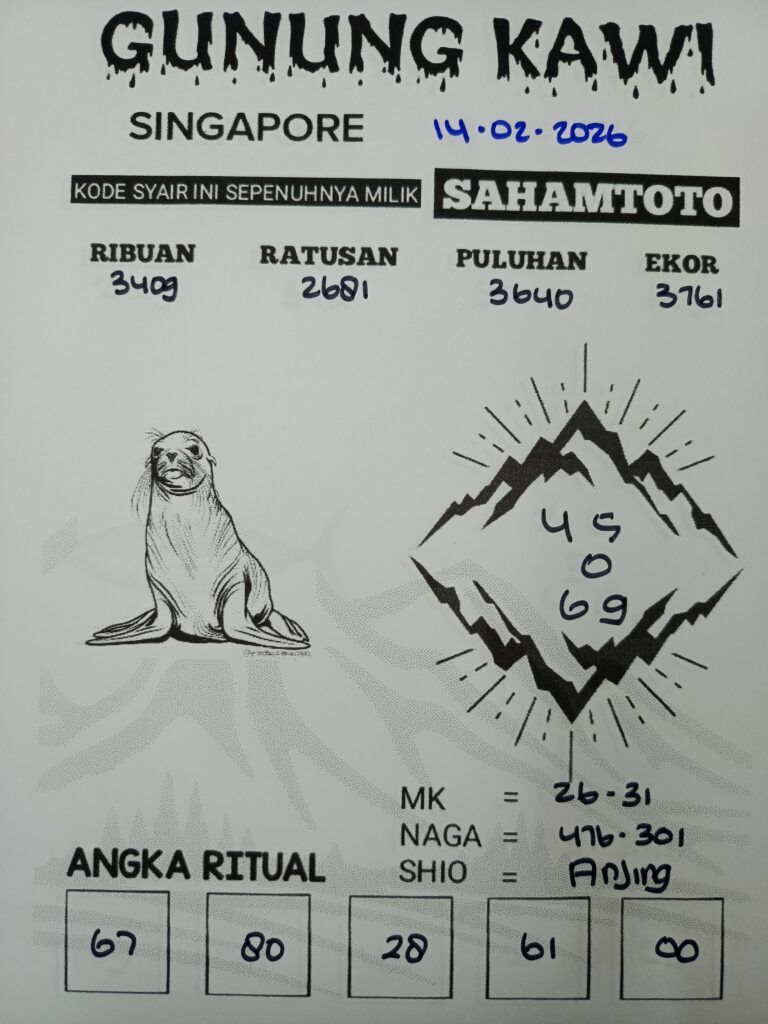 GUNUNG KAWI
SINGAPORE 14-02-2026
KODE SYAIR INI SEPENUHNYA MILIK SAHAMTOTO
RIBUAN RATUSAN PULUHAN EKOR
3409 2681 3640 3761
4 5
0
6 9
MK = 26-31
NAGA = 476-301
SHIO = Anjing
ANGKA RITUAL
67 80 28 61 00